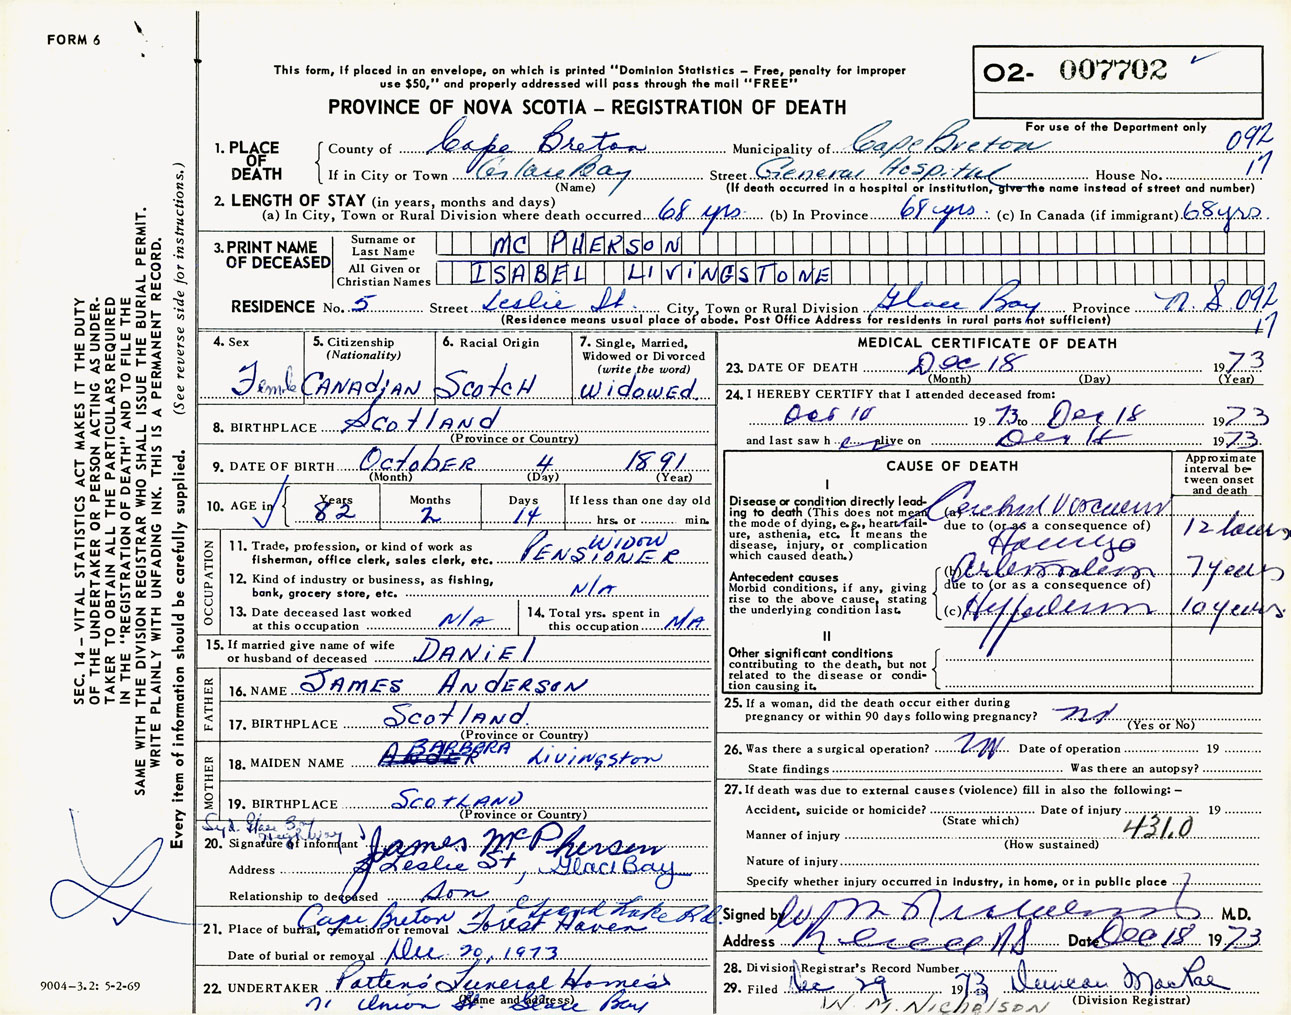 FORM 6
This form, if placed in an envelope, on which is printed "Dominion Statistics – Free, penalty for improper
use $50," and properly addressed will pass through the mail "FREE"
PROVINCE OF NOVA SCOTIA – REGISTRATION OF DEATH
02- 007702
For use of the Department only
092
17
1. PLACE OF DEATH
County of Cape Breton Municipality of Cape Breton
If in City or Town Glace Bay Street General Hospital House No.
(Name) (If death occurred in a hospital or institution, give the name instead of street and number)
2. LENGTH OF STAY (in years, months and days)
(a) In City, Town or Rural Division where death occurred 68 yrs. (b) In Province 68 yrs. (c) In Canada (if immigrant) 68 yrs.
3. PRINT NAME OF DECEASED
Surname or Last Name MC PHERSON
All Given or Christian Names ISABEL LIVINGSTONE
RESIDENCE No. 5 Street Leslie St. City, Town or Rural Division Glace Bay Province N.S. 092
17
(Residence means usual place of abode. Post Office Address for residents in rural parts not sufficient)
4. Sex Female
5. Citizenship (Nationality) CANADIAN
6. Racial Origin SCOTCH
7. Single, Married, Widowed or Divorced (write the word) WIDOWED
8. BIRTHPLACE Scotland
(Province or Country)
9. DATE OF BIRTH October 4 1891
(Month) (Day) (Year)
10. AGE in Years 82 Months 2 Days 14 If less than one day old hrs. or min.
OCCUPATION
11. Trade, profession, or kind of work as fisherman, office clerk, sales clerk, etc. WIDOW PENSIONER
12. Kind of industry or business, as fishing, bank, grocery store, etc. N/A
13. Date deceased last worked at this occupation N/A
14. Total yrs. spent in this occupation N/A
15. If married give name of wife or husband of deceased DANIEL
FATHER
16. NAME JAMES ANDERSON
17. BIRTHPLACE Scotland
(Province or Country)
MOTHER
18. MAIDEN NAME BARBARA LIVINGSTON
19. BIRTHPLACE SCOTLAND
(Province or Country)
Syd. Glace Bay Highway
20. Signature of informant James McPherson
Address Leslie St, Glace Bay
Relationship to deceased Son
Grand Lake Rd.
21. Place of burial, cremation or removal Cape Breton Forest Haven
Date of burial or removal Dec. 20, 1973
22. UNDERTAKER Patten's Funeral Homes
71 Union St. Glace Bay
(Name and address)
MEDICAL CERTIFICATE OF DEATH
23. DATE OF DEATH Dec 18 1973
(Month) (Day) (Year)
24. I HEREBY CERTIFY that I attended deceased from:
10 1973 to Dec 18 1973
and last saw her alive on Dec 1973
CAUSE OF DEATH
Approximate interval between onset and death
I
Disease or condition directly leading to death (This does not mean the mode of dying, e.g., heart failure, asthenia, etc. It means the disease, injury, or complication which caused death.)
(a) Cerebral Vascular
due to (or as a consequence of) 12 hours
Antecedent causes
Morbid conditions, if any, giving rise to the above cause, stating the underlying condition last.
(b) 7 years
due to (or as a consequence of)
(c) 10 years
II
Other significant conditions
contributing to the death, but not related to the disease or condition causing it.
25. If a woman, did the death occur either during pregnancy or within 90 days following pregnancy? no
(Yes or No)
26. Was there a surgical operation? no Date of operation 19
State findings Was there an autopsy?
27. If death was due to external causes (violence) fill in also the following: –
Accident, suicide or homicide? Date of injury 19
(State which)
Manner of injury 431.0
(How sustained)
Nature of injury
Specify whether injury occurred in industry, in home, or in public place
Signed by M.D.
Address Date Dec 18 1973
28. Division Registrar's Record Number
29. Filed Dec 29 1973 Duncan MacRae
(Division Registrar)
W. M. NICHOLSON
SEC. 14 – VITAL STATISTICS ACT MAKES IT THE DUTY
OF THE UNDERTAKER OR PERSON ACTING AS UNDER-
TAKER TO OBTAIN ALL THE PARTICULARS REQUIRED
IN THE "REGISTRATION OF DEATH" AND TO FILE THE
SAME WITH THE DIVISION REGISTRAR WHO SHALL ISSUE THE BURIAL PERMIT.
WRITE PLAINLY WITH UNFADING INK. THIS IS A PERMANENT RECORD.
Every item of information should be carefully supplied. (See reverse side for instructions.)
9004-3.2: 5-2-69